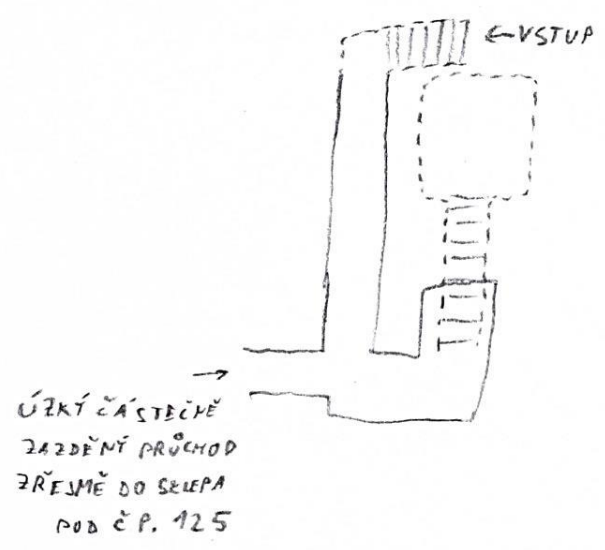 ←VSTUP
→
ÚZKÝ ČÁSTEČNĚ
ZAZDĚNÝ PRŮCHOD
ZŘEJMĚ DO SKLEPA
POD ČP. 125